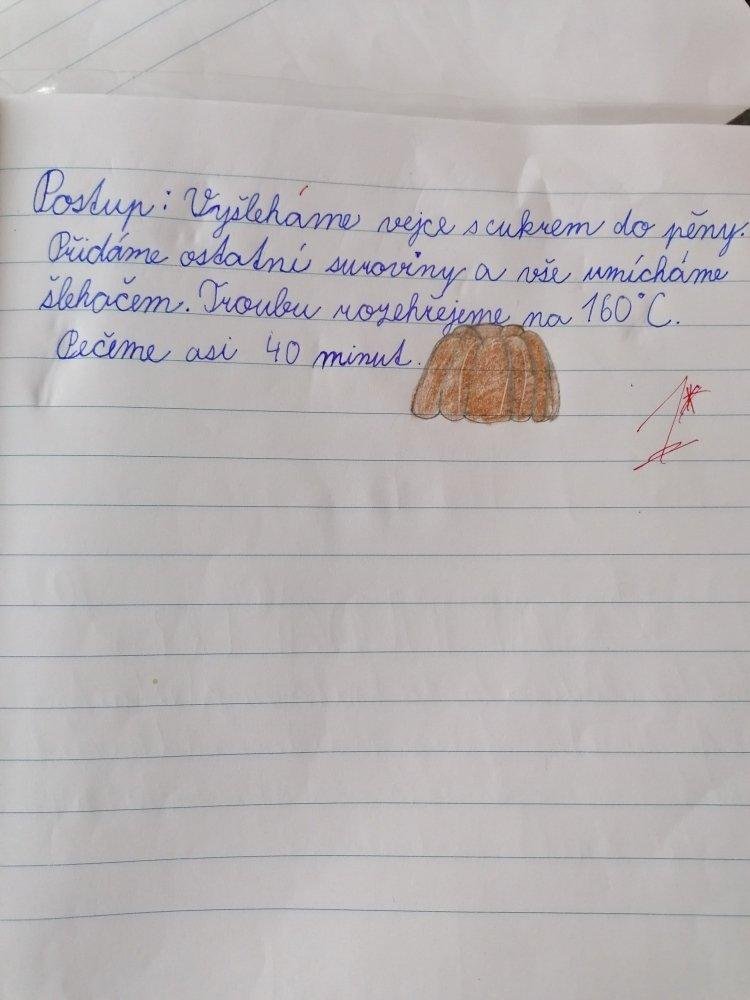 Postup: Vyšleháme vejce s cukrem do pěny.
Přidáme ostatní suroviny a vše umícháme
šlehačem. Troubu rozehřejeme na 160°C.
Pečeme asi 40 minut.
1*